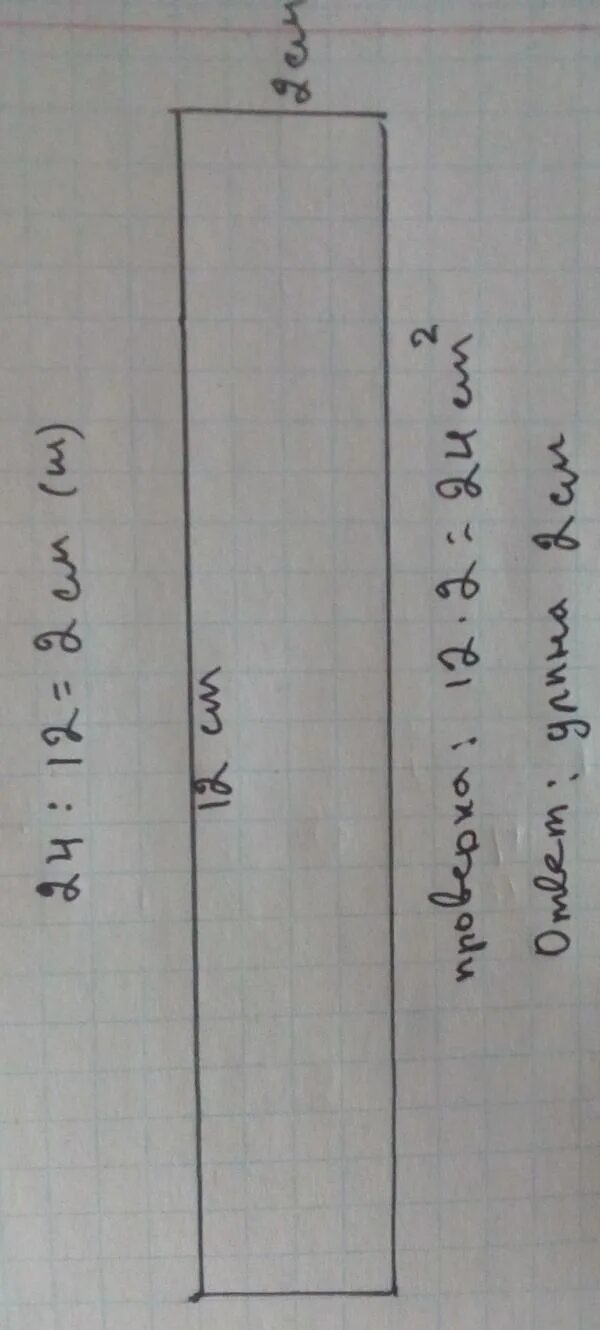 24 : 12 = 2 см (ш)
2 см
12 см
проверка: 12 · 2 = 24 см²
Ответ: улина 2 см